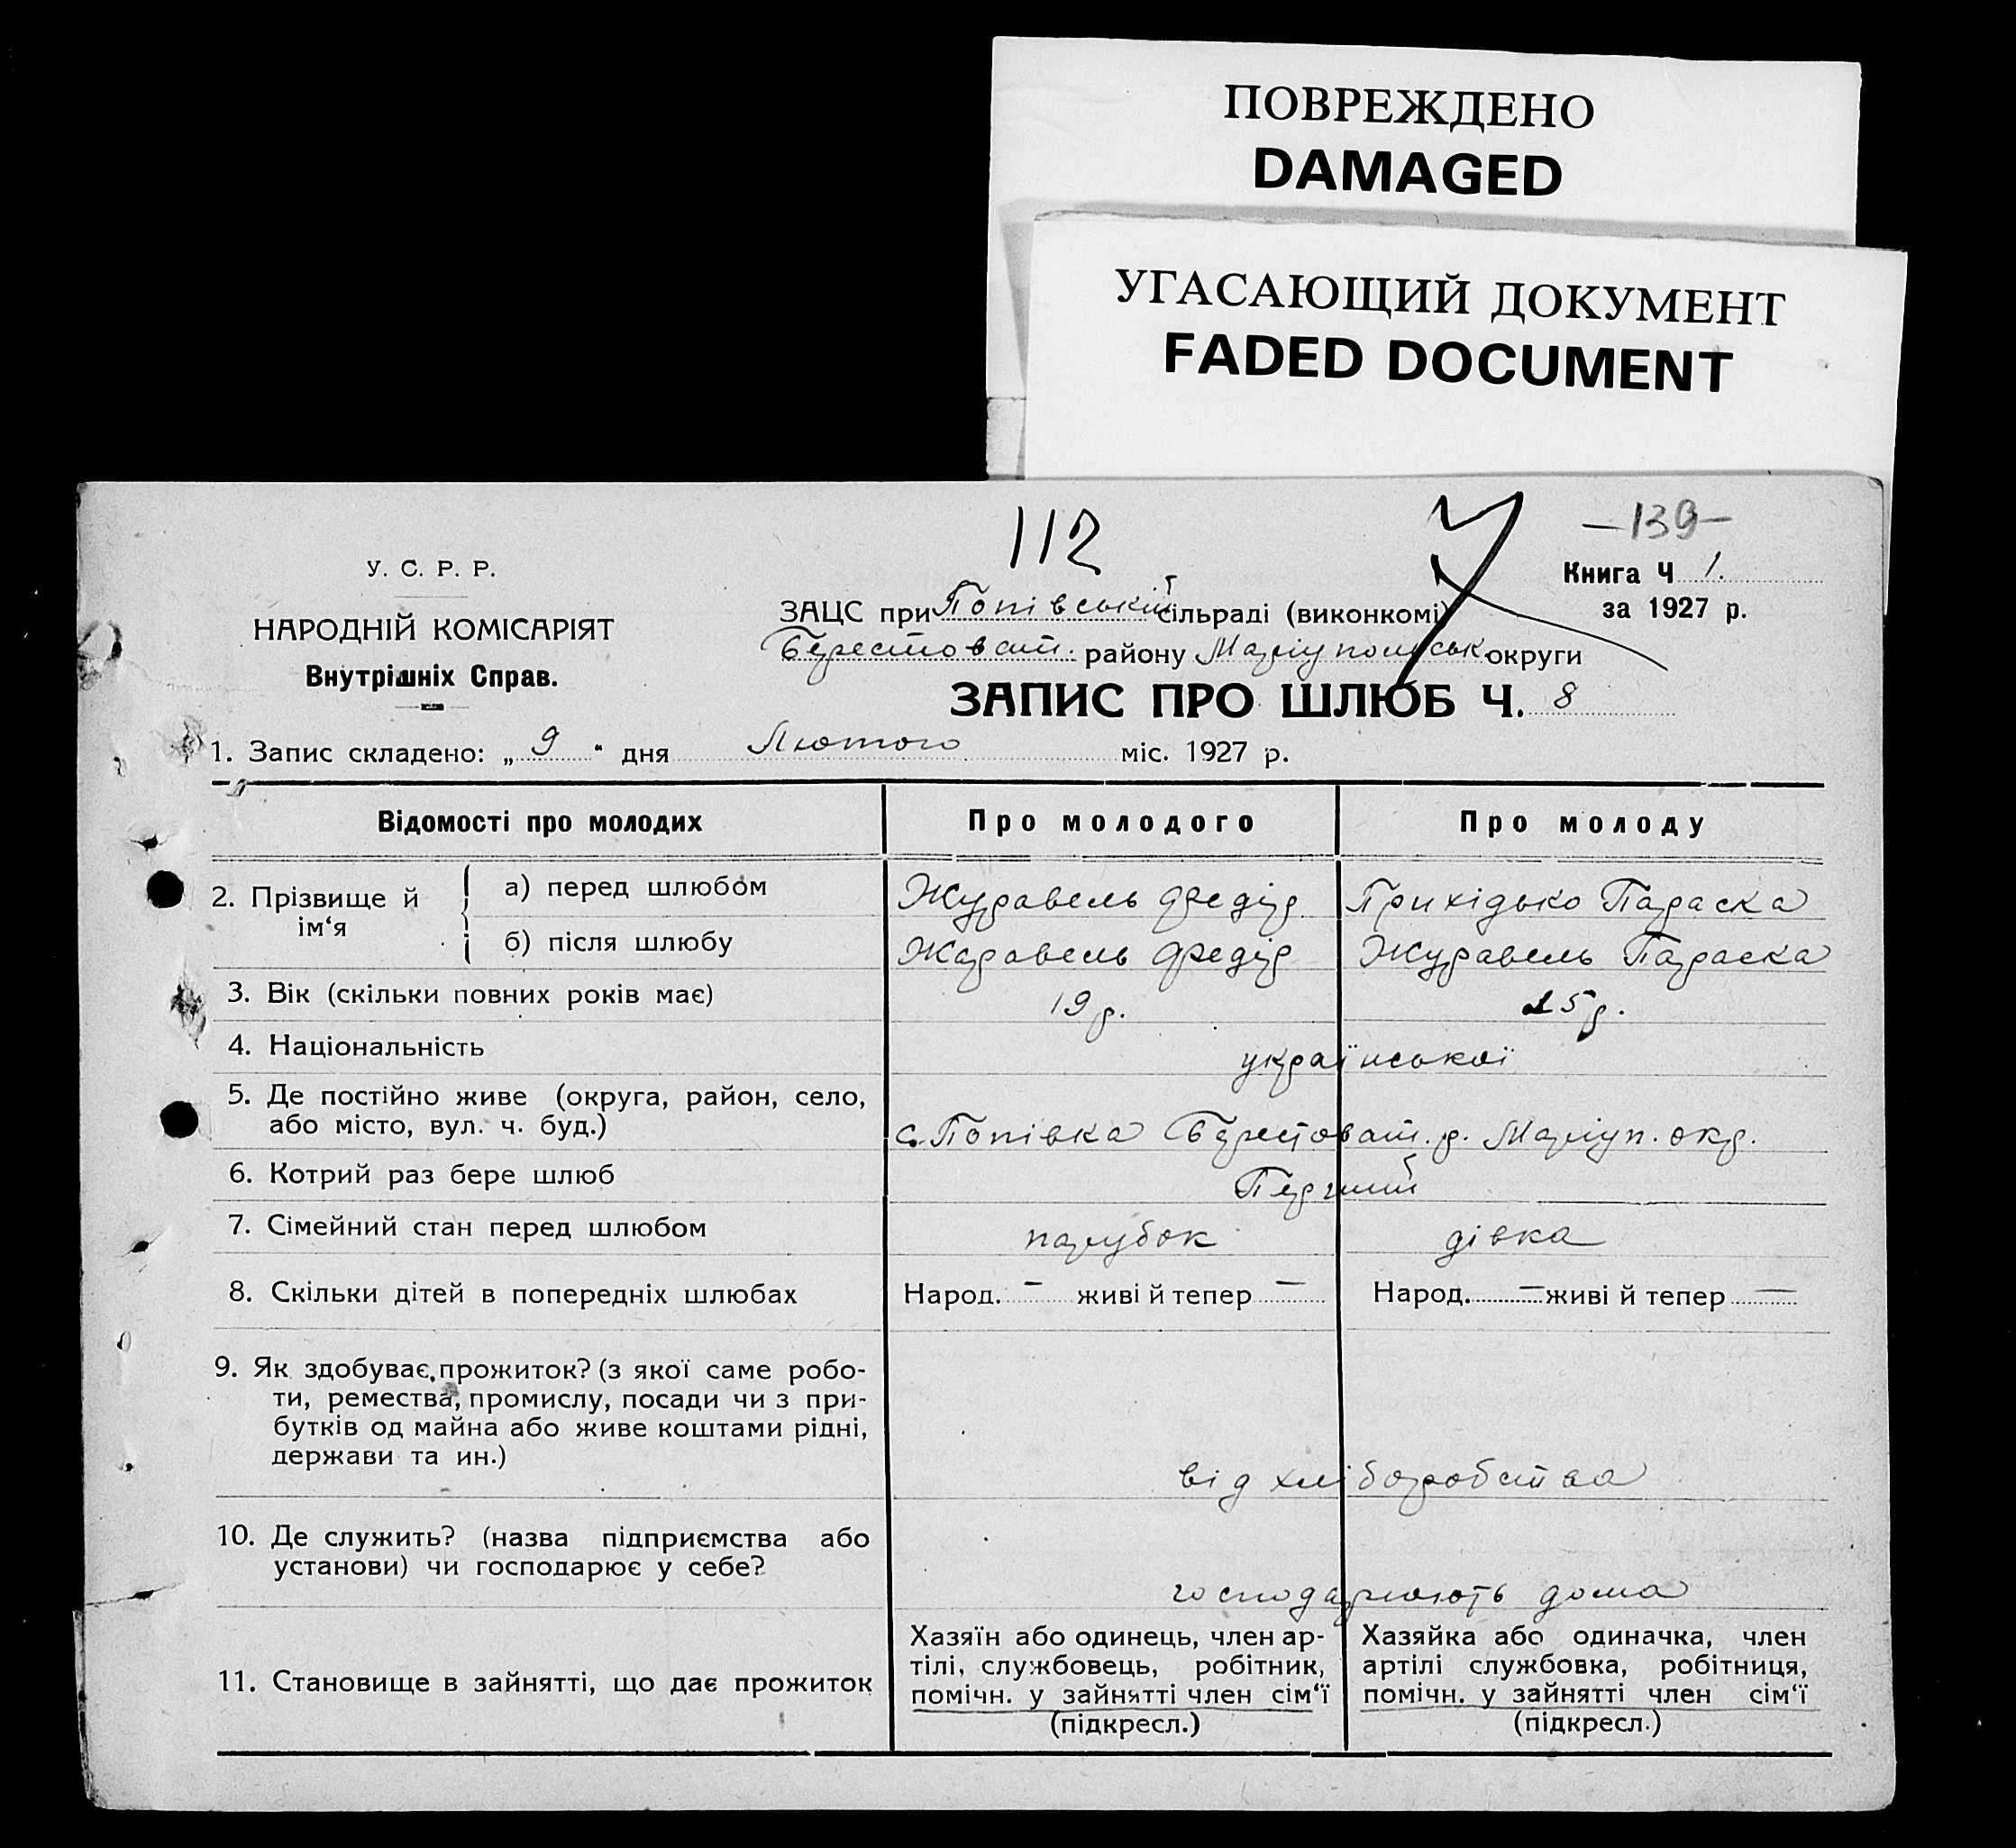 ПОВРЕЖДЕНО
DAMAGED
УГАСАЮЩИЙ ДОКУМЕНТ
FADED DOCUMENT
112
—139—
У. С. Р. Р.
НАРОДНІЙ КОМІСАРІЯТ
Внутрішніх Справ.
Книга Ч 1.
за 1927 р.
ЗАЦС при Попівській сільраді (виконкомі)
Берестоват. району Маріупольськ округи
ЗАПИС ПРО ШЛЮБ Ч. 8
1. Запис складено: „ 9 “ дня Лютого міс. 1927 р.
Відомості про молодих Про молодого Про молоду
2. Прізвище й ім‘я
а) перед шлюбом Журавель Федір Прихідько Параска
б) після шлюбу Жаравель Федір Журавель Параска
3. Вік (скільки повних років має) 19 р. 25 р.
4. Національність української
5. Де постійно живе (округа, район, село,
або місто, вул. ч. буд.) с. Попівка Берестоват. р. Маріуп. окр.
6. Котрий раз бере шлюб Перший
7. Сімейний стан перед шлюбом парубок дівка
8. Скільки дітей в попередніх шлюбах Народ. — живі й тепер — Народ. — живі й тепер —
9. Як здобуває прожиток? (з якої саме робо-
ти, ремества, промислу, посади чи з при-
бутків од майна або живе коштами рідні,
держави та ин.) від хліборобства
10. Де служить? (назва підприємства або
установи) чи господарює у себе? господарюють дома
11. Становище в зайнятті, що дає прожиток
Хазяїн або одинець, член ар-
тілі, службовець, робітник,
помічн. у зайнятті член сім‘ї
(підкресл.)
Хазяйка або одиначка, член
артілі службовка, робітниця,
помічн. у зайнятті член сім‘ї
(підкресл.)